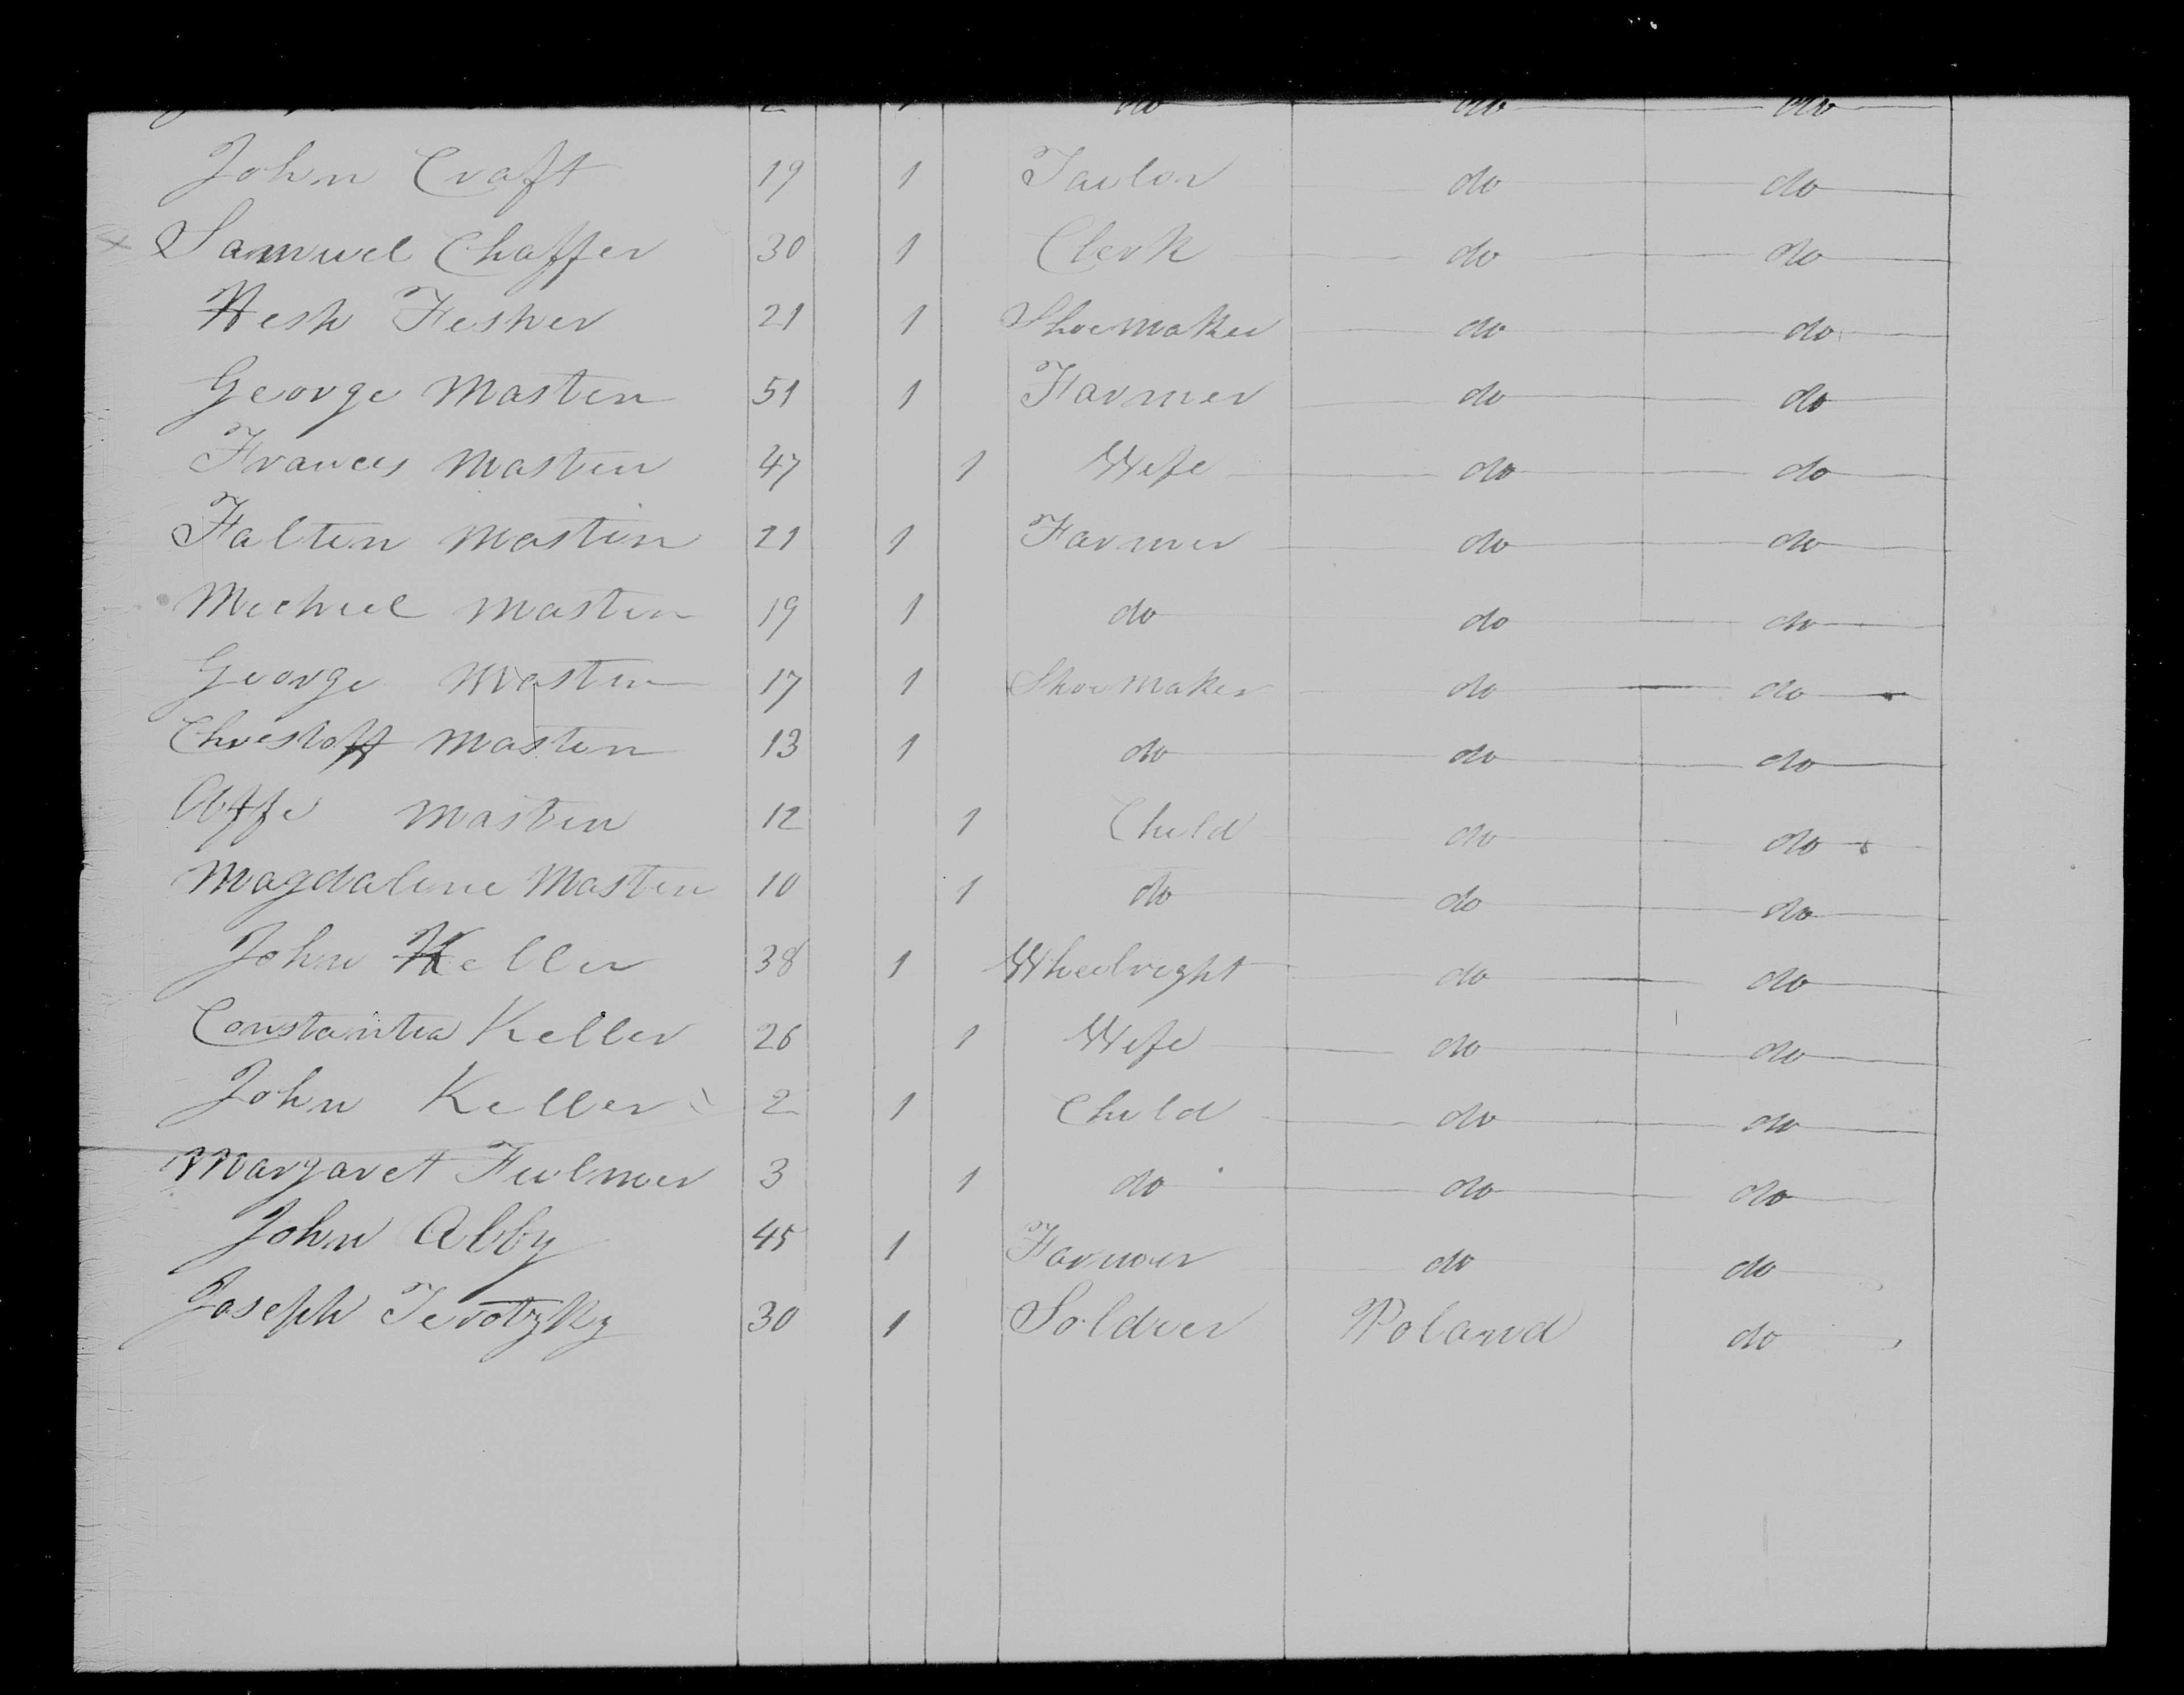 do do do
John Craft 19 1 Taylor do do
Samuel Chaffer 30 1 Clerk do do
Hesh Fesher 21 1 Shoemaker do do
George Masten 51 1 Farmer do do
Frances Masten 47 1 Wife do do
Falten Masten 21 1 Farmer do do
Michael Masten 19 1 do do do
George Masten 17 1 Shoemaker do do
Chrestoff Masten 13 1 do do do
Masten 12 1 Child do do
Magdalene Masten 10 1 do do do
John Keller 38 1 Wheelright do do
Constantia Keller 26 1 Wife do do
John Keller 2 1 Child do do
Margaret Fulmer 3 1 do do do
John Abby 45 1 Farmer do do
Joseph 30 1 Soldier Poland do